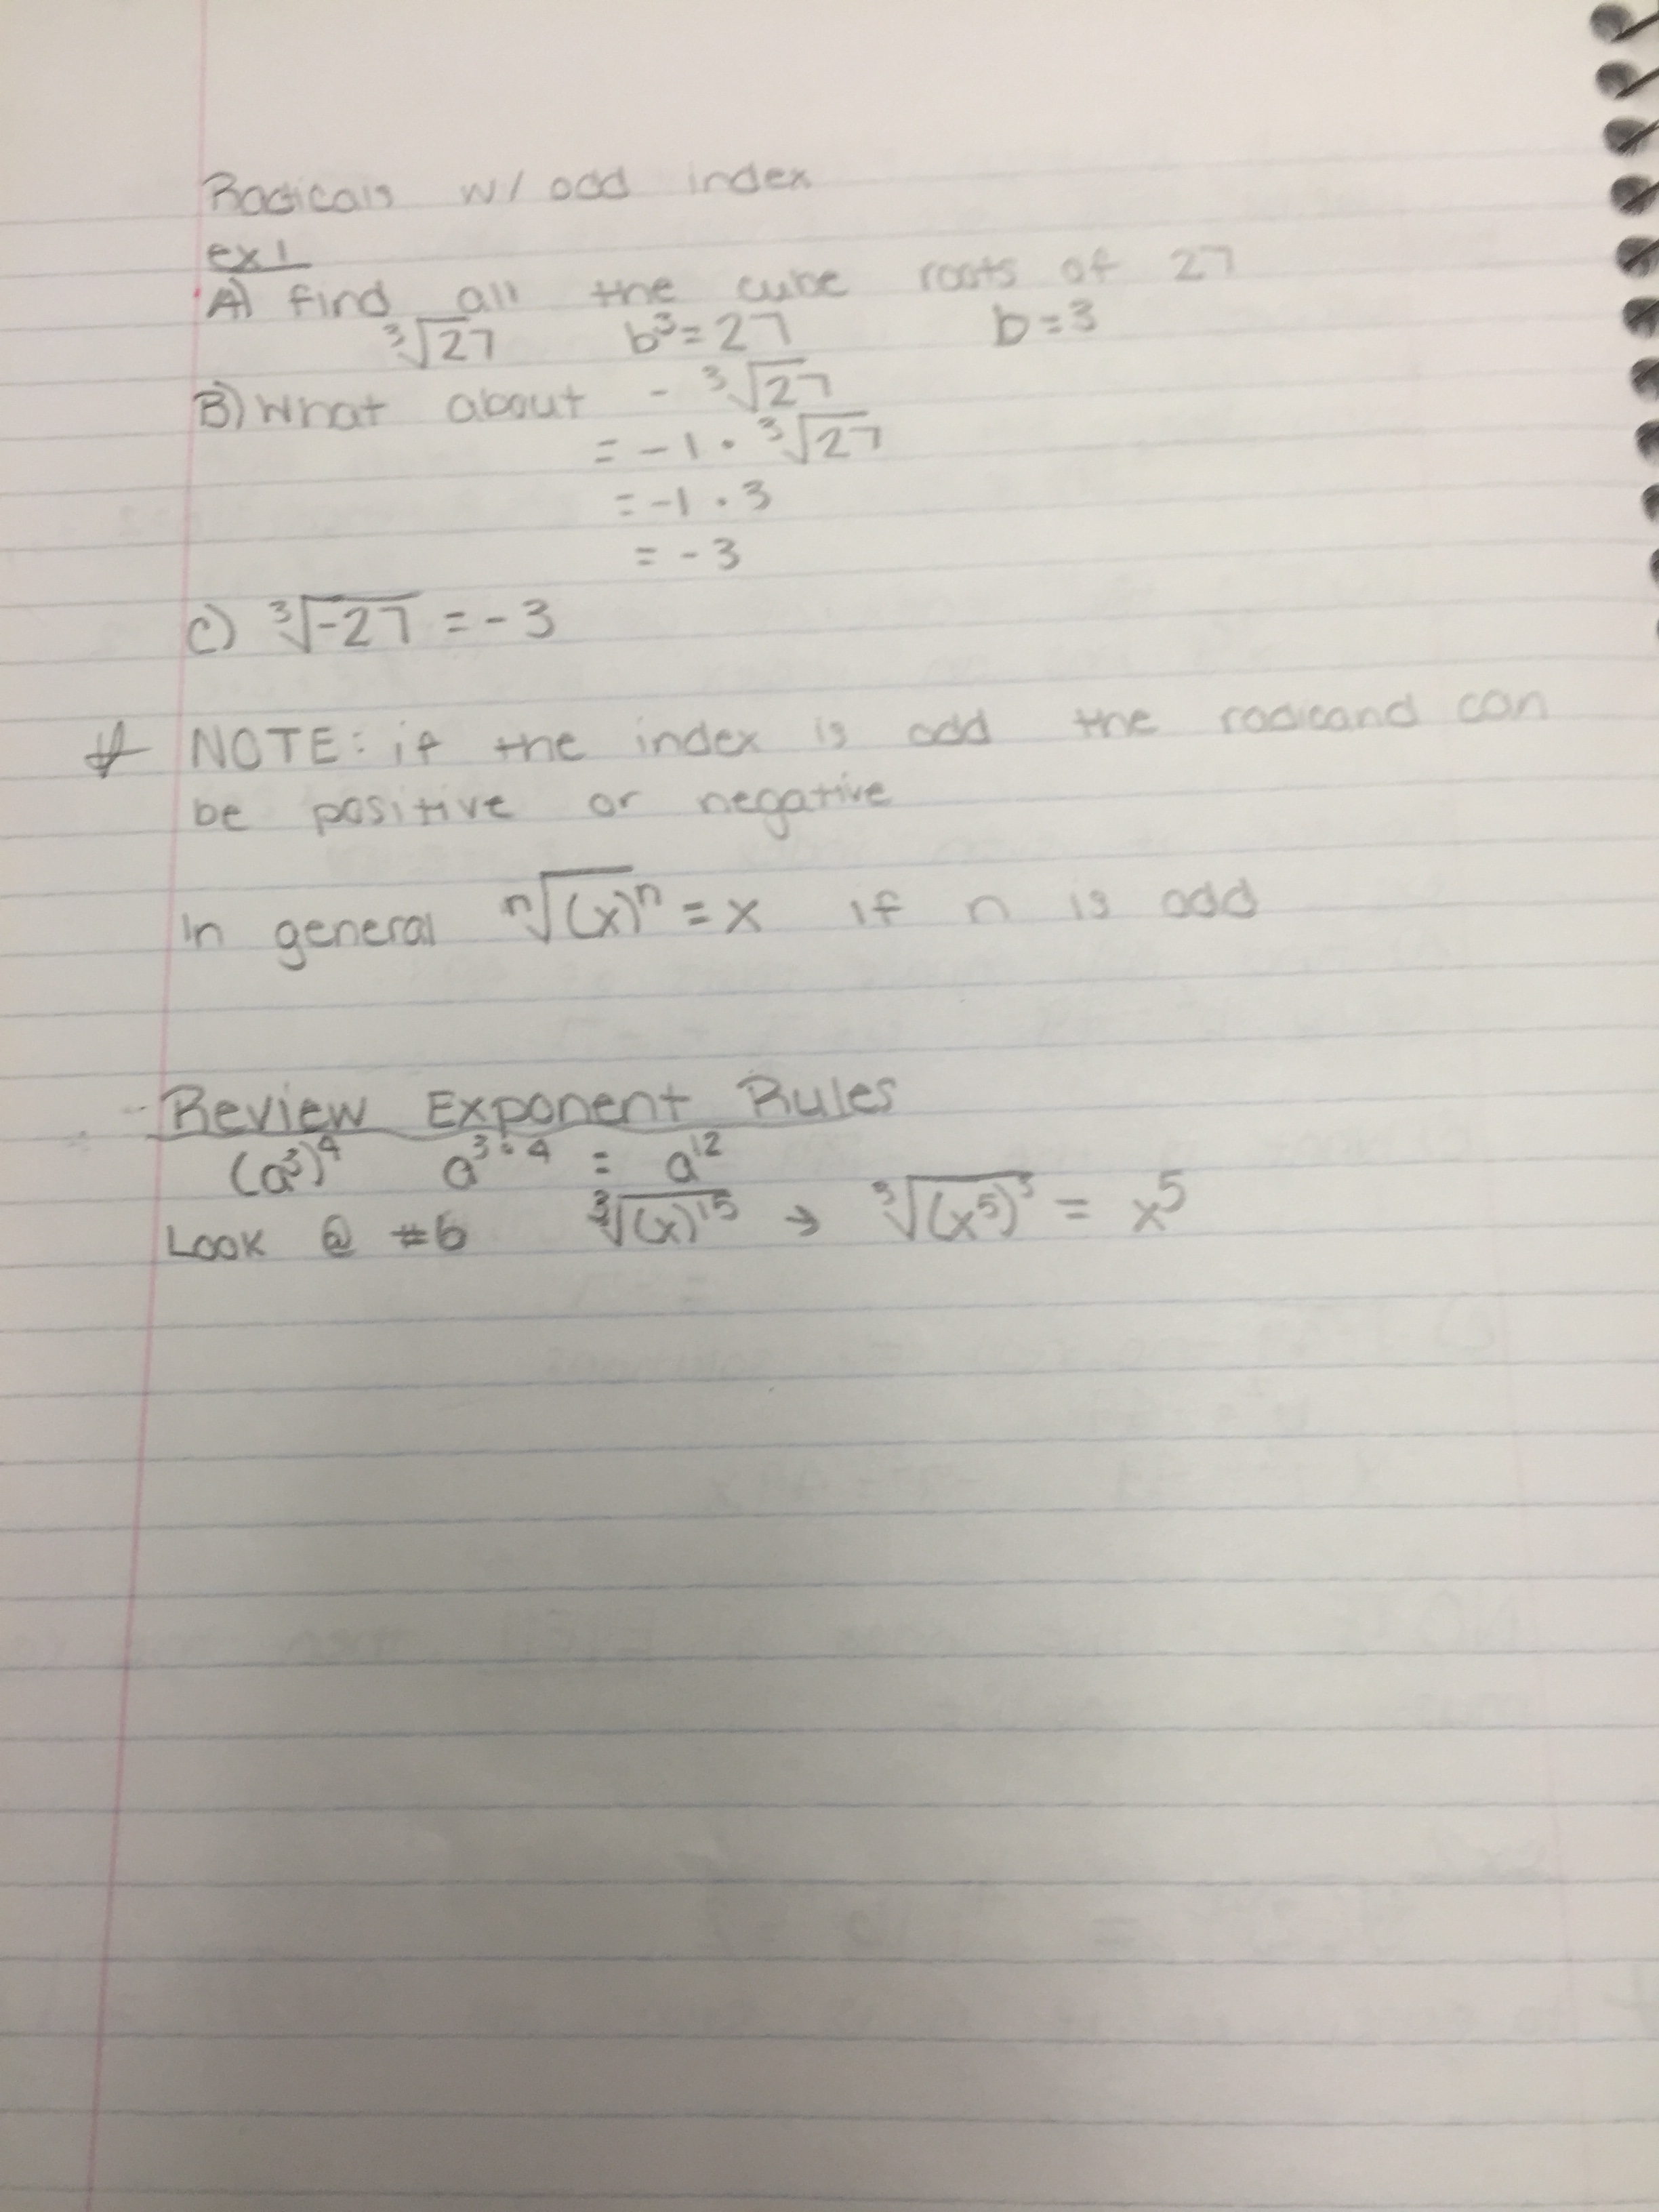 Radicals w/ odd index
ex 1
A) find all the cube roots of 27
∛27 b³=27 b=3
B) What about - ∛27
= -1 · ∛27
= -1 · 3
= -3
C) ∛-27 = -3
* NOTE: if the index is odd the radicand can
be positive or negative
In general ⁿ√(x)ⁿ = x if n is odd
Review Exponent Rules
(a³)⁴ a³·⁴ = a¹²
Look @ #6 ∛(x)¹⁵ → ∛(x⁵)³ = x⁵